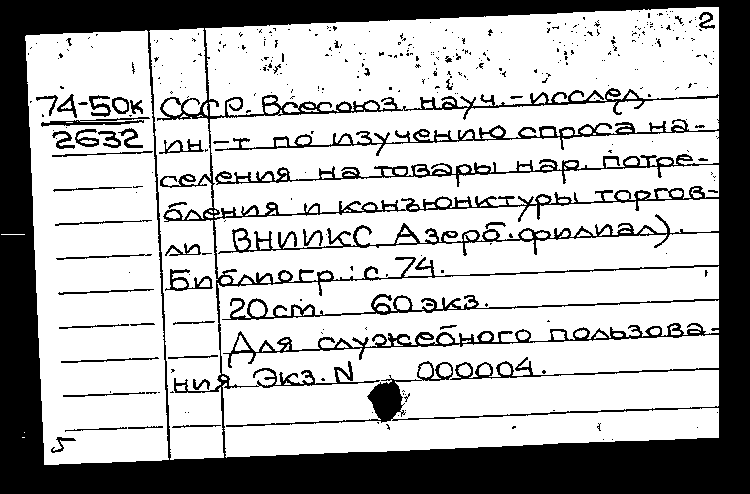 2
74-50к СССР. Всесоюз. науч.-исслед.
2632 ин-т по изучению спроса на-
селения на товары нар. потре-
бления и конъюнктуры торгов-
ли ВНИИКС. Азерб. филиал).
Библиогр.: с. 74.
20 cm. 60 экз.
Для служебного пользова-
ния. Экз. N 000004.
5